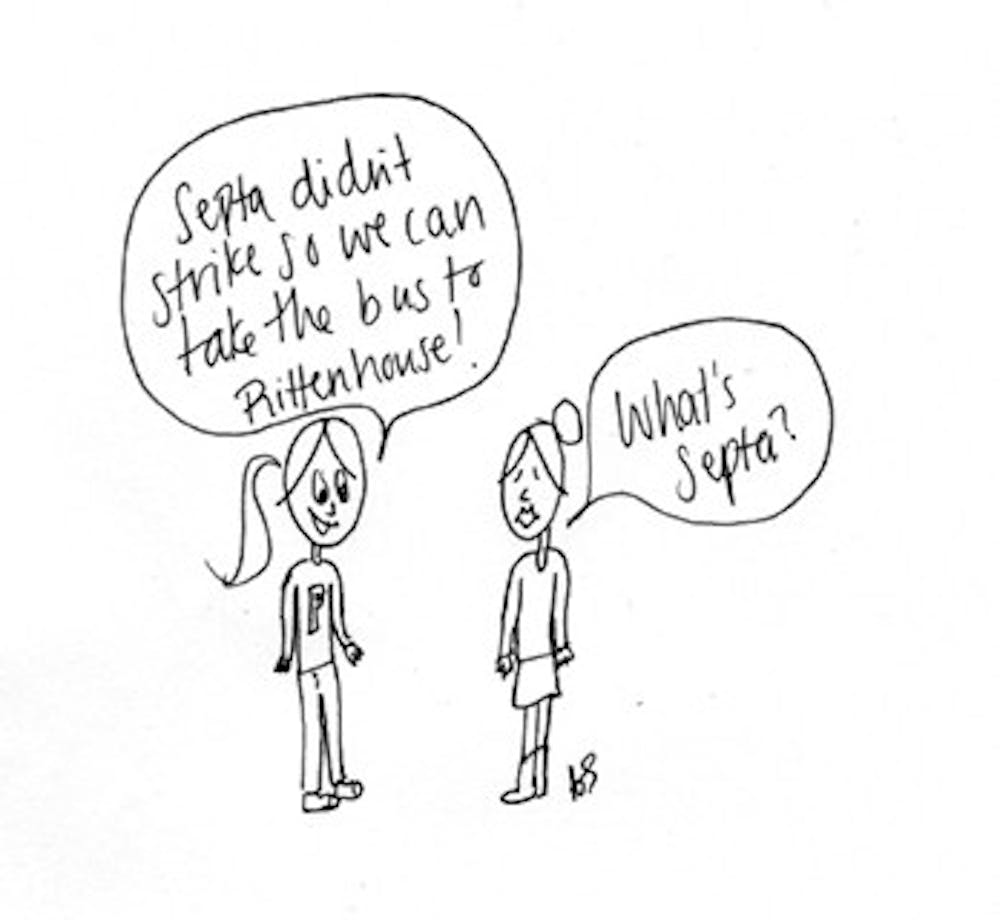 Septa didn't
strike so we can
take the bus to
Rittenhouse!
What's
Septa?
P
bs